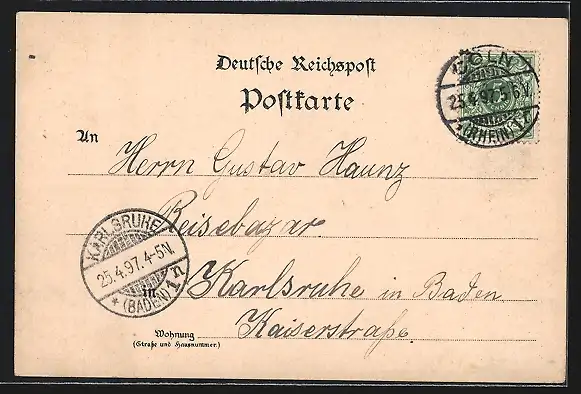 Deutsche Reichspost
Postkarte
CÖLN
25.4.97. 5-6V.
An
Herrn Gustav Haunz
Reisebazar
KARLSRUHE
25.4.97. 4-5N.
* (BADEN) 1
in Karlsruhe in Baden
Kaiserstraße.
Wohnung
(Straße und Hausnummer.)